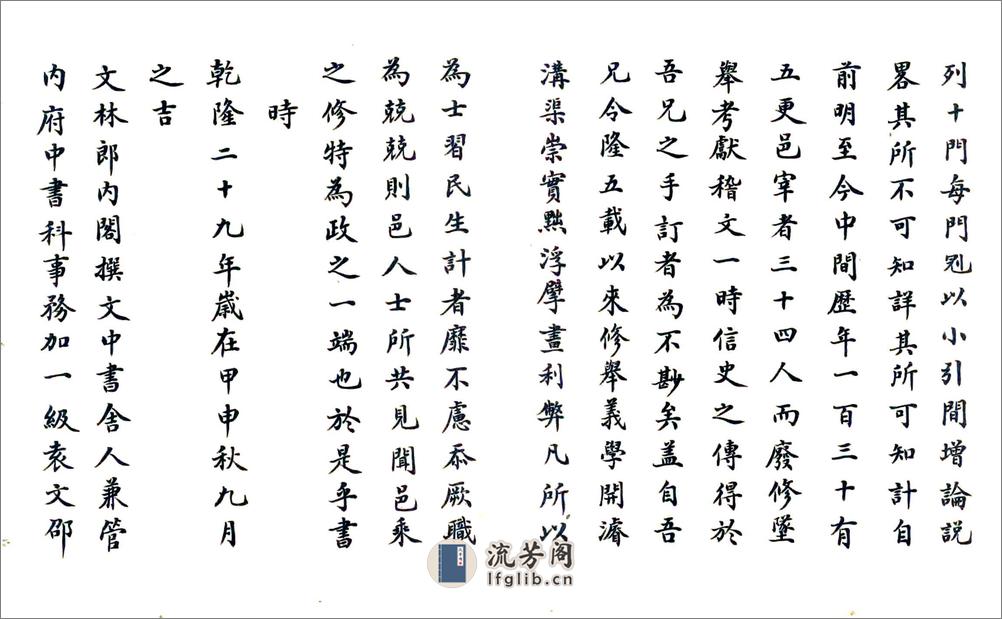 列十門每門冠以小引間增論説
畧其所不可知詳其所可知計自
前明至今中間歴年一百三十有
五更邑宰者三十四人而廢修墜
舉考獻稽文一時信史之傳得於
吾兄之手訂者為不尠矣蓋自吾
兄令隆五載以來修舉義學開濬
溝渠崇實黜浮擘畫利弊凡所以
為士習民生計者靡不慮忝厥職
為兢兢則邑人士所共見聞邑乘
之修特為政之一端也於是乎書
時
乾隆二十九年嵗在甲申秋九月
之吉
文林郎内閣撰文中書舎人兼管
内府中書科事務加一級袁文邵
流芳阁
lfglib.cn